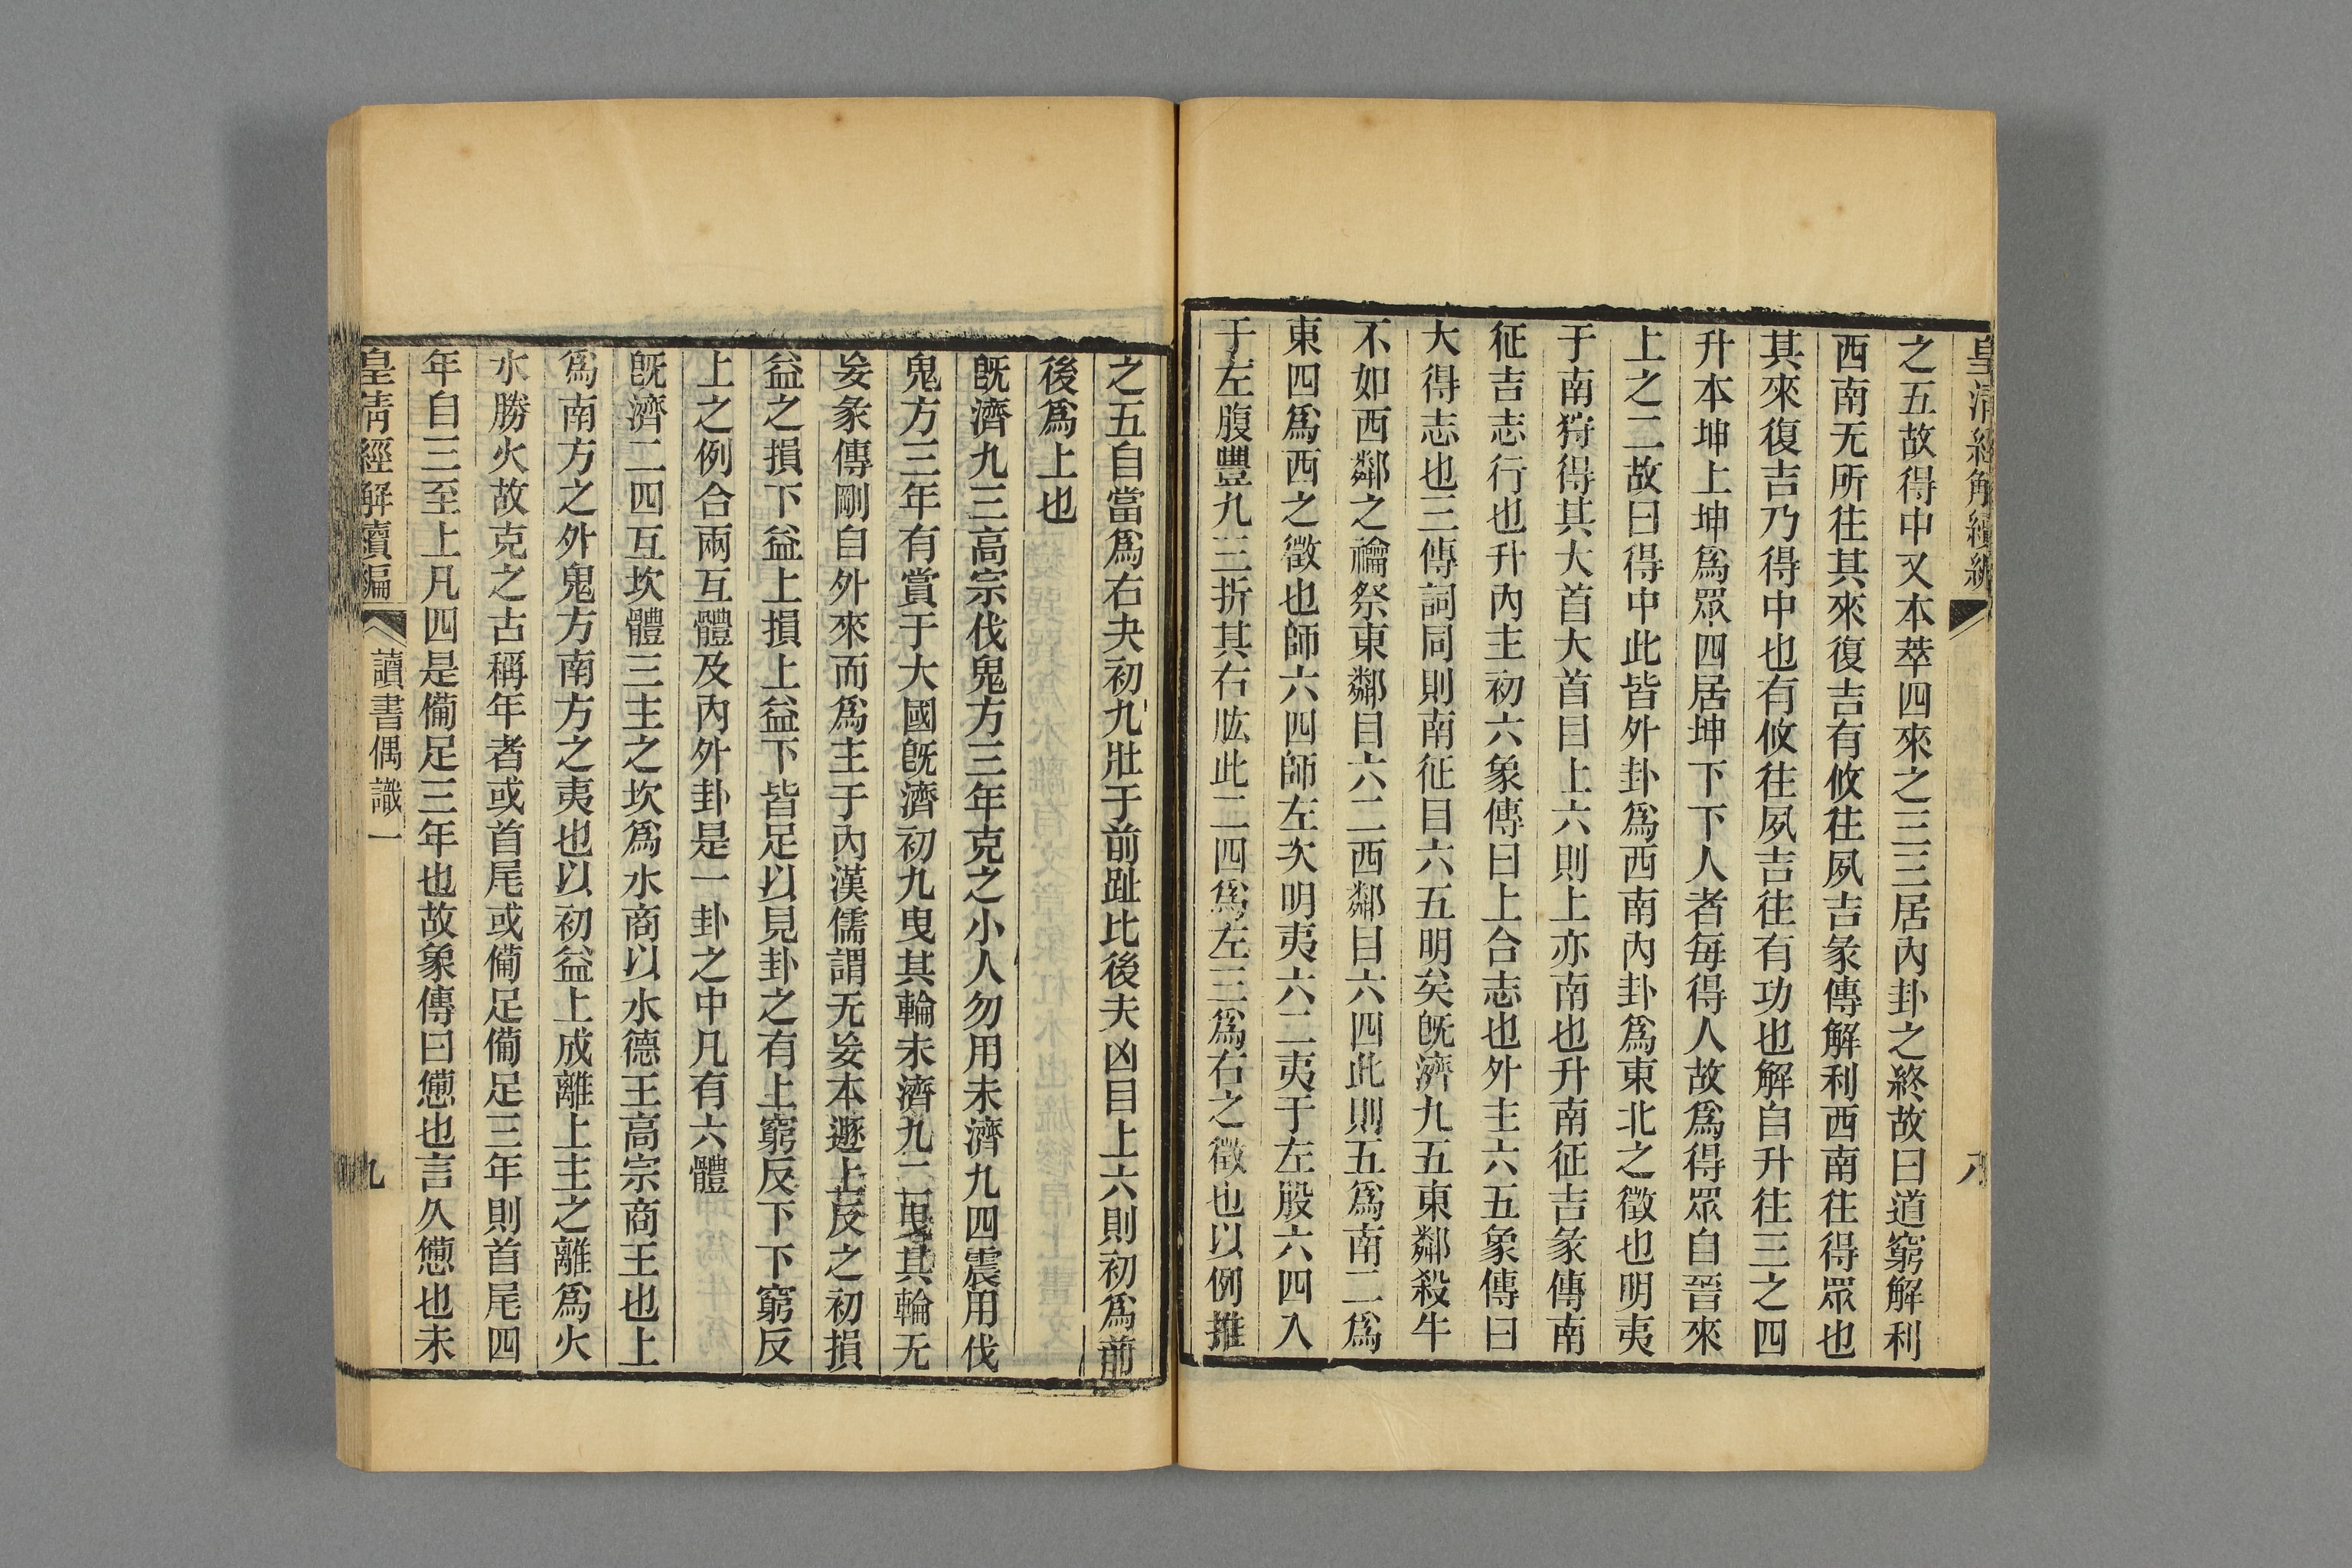 皇清經解續編
八
之五故得中又本萃四來之三三居內卦之終故曰道窮解利
西南无所往其來復吉有攸往夙吉彖傳解利西南往得眾也
其來復吉乃得中也有攸往夙吉往有功也解自升往三之四
升本坤上坤爲眾四居坤下下人者每得人故爲得眾自晉來
上之二故曰得中此皆外卦爲西南內卦爲東北之徵也明夷
于南狩得其大首大首目上六則上亦南也升南征吉彖傳南
征吉志行也升內主初六象傳曰上合志也外主六五象傳曰
大得志也三傳詞同則南征目六五明矣旣濟九五東鄰殺牛
不如西鄰之禴祭東鄰目六二西鄰目六四此則五爲南二爲
東四爲西之徵也師六四師左次明夷六二夷于左股六四入
于左腹豐九三折其右肱此二四爲左三爲右之徵也以例推
之五自當爲右夬初九壯于前趾比後夫凶目上六則初爲前
後爲上也
旣濟九三高宗伐鬼方三年克之小人勿用未濟九四震用伐
鬼方三年有賞于大國旣濟初九曳其輪未濟九二曳其輪无
妄彖傳剛自外來而爲主于內漢儒謂无妄本遯上反之初損
益之損下益上損上益下皆足以見卦之有上窮反下下窮反
上之例合兩互體及內外卦是一卦之中凡有六體
旣濟二四互坎體三主之坎爲水商以水德王高宗商王也上
爲南方之外鬼方南方之夷也以初益上成離上主之離爲火
水勝火故克之古稱年者或首尾或備足備足三年則首尾四
年自三至上凡四是備足三年也故象傳曰憊也言久憊也未
皇清經解續編
讀書偶識一
九